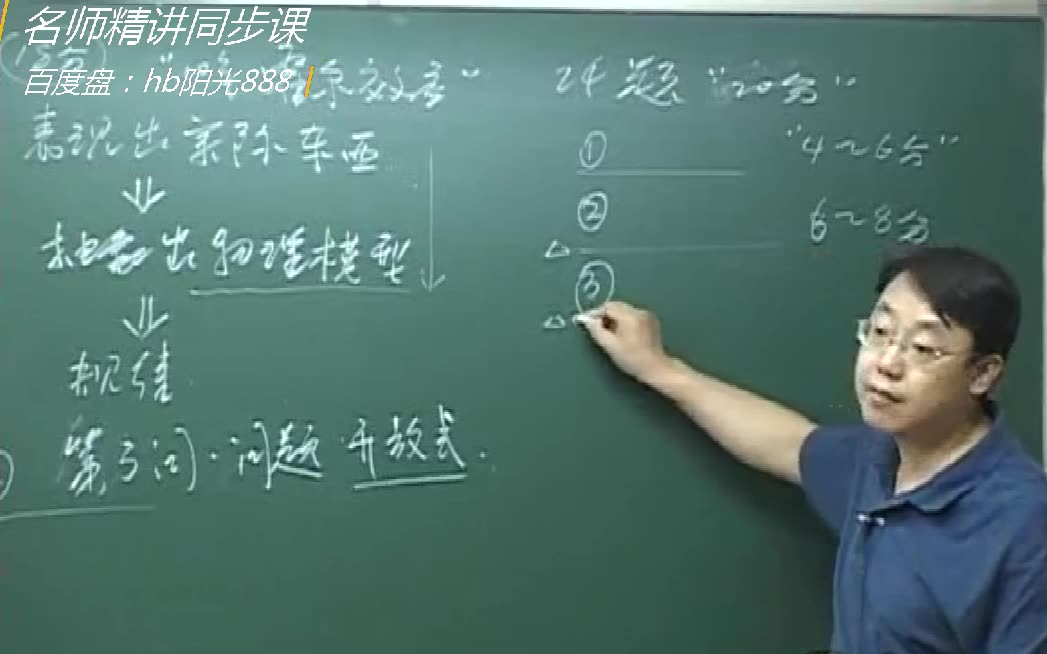 名师精讲同步课
百度盘：hb阳光888
表现出实际东西
⇓
抽象出物理模型
⇓
规律
第3问·问题开放式.
24题 "20分"
① "4～6分"
② 6～8分
△
③
△